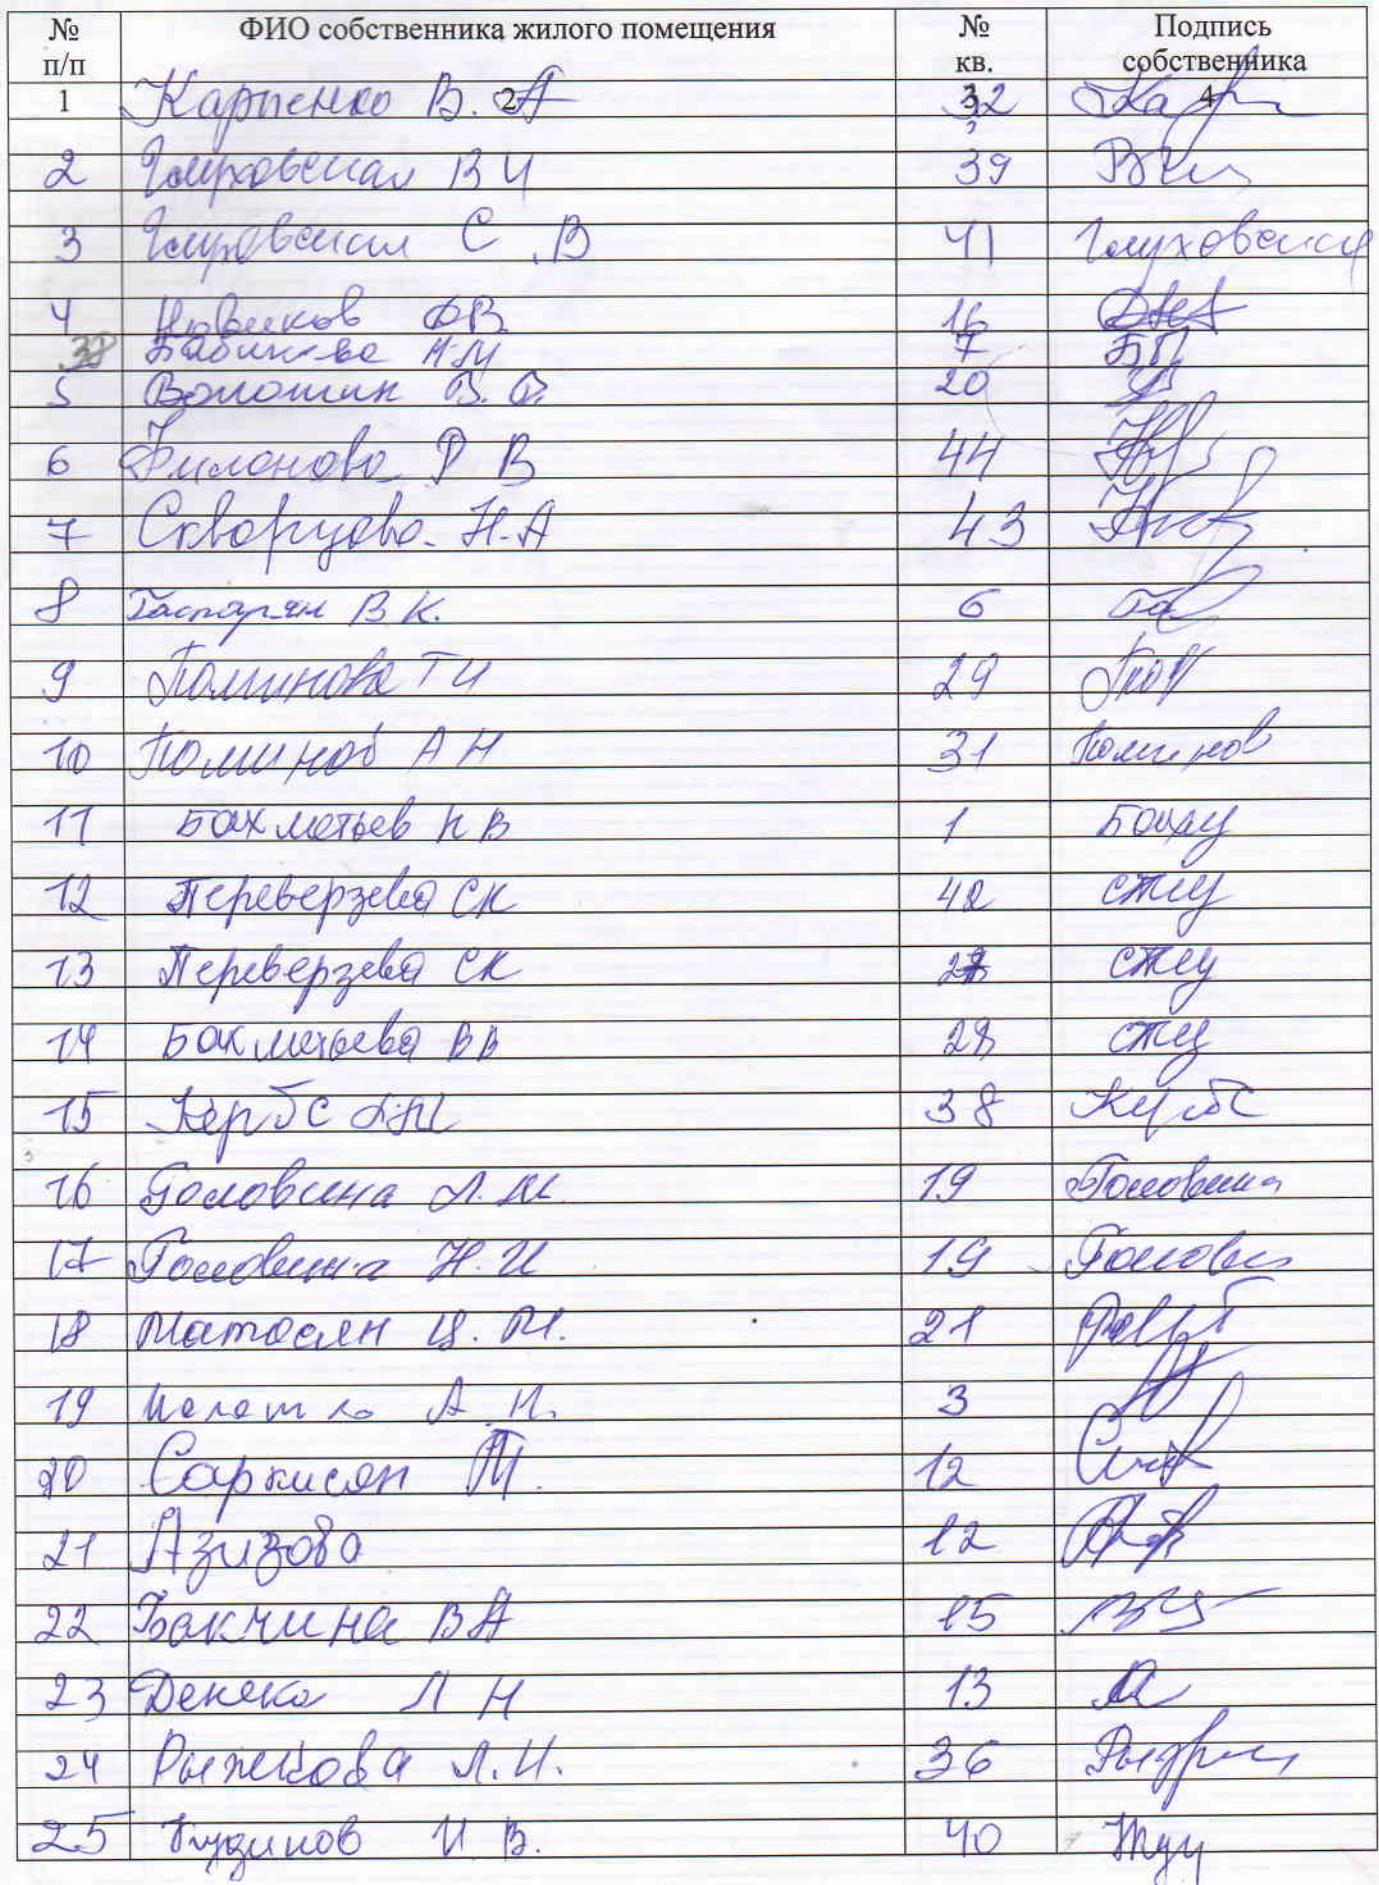 № п/п ФИО собственника жилого помещения № кв. Подпись собственника
1 2 3 4
Карпенко В. А 32
2 Глуховская В И 39
3 Глуховская С В 41 Глуховская
4 Новиков 16
7
5 Волошин В. 20
6 Филонова Р В 44
7 Скворцова Н. А 43
8 Гаспарян В К. 6
9 Поминова Т И 29
10 Поминов А Н 31 Поминов
11 Бахметьев К В 1
12 Переверзева СК 42
13 Переверзева СК
14 Бахметьева ВВ 28
15 Кербс 38 Кербс
16 Головина Л. М. 19 Головина
17 Головина Н. И 19
18 Матосян Ц. М. 21
19 А. Н. 3
20 Саркисян Т. 12
21 Азизова 12
22 Бакчина ВА 15
23 Денека Л Н 13
24 Рыжкова Л. И. 36
25 Кудинов И В. 40